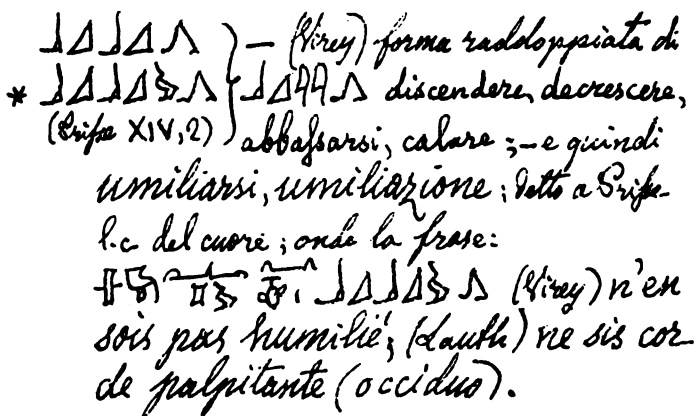 — (Virey) forma raddoppiata di
* discendere, decrescere,
(Prisse XIV, 2) abbassarsi, calare ; — e quindi
umiliarsi, umiliazione ; detto a Prisse
l.c. del cuore ; onde la frase :
(Virey) n'en
sois pas humilié ; (Lauth) ne sis cor-
de palpitante (occiduo).